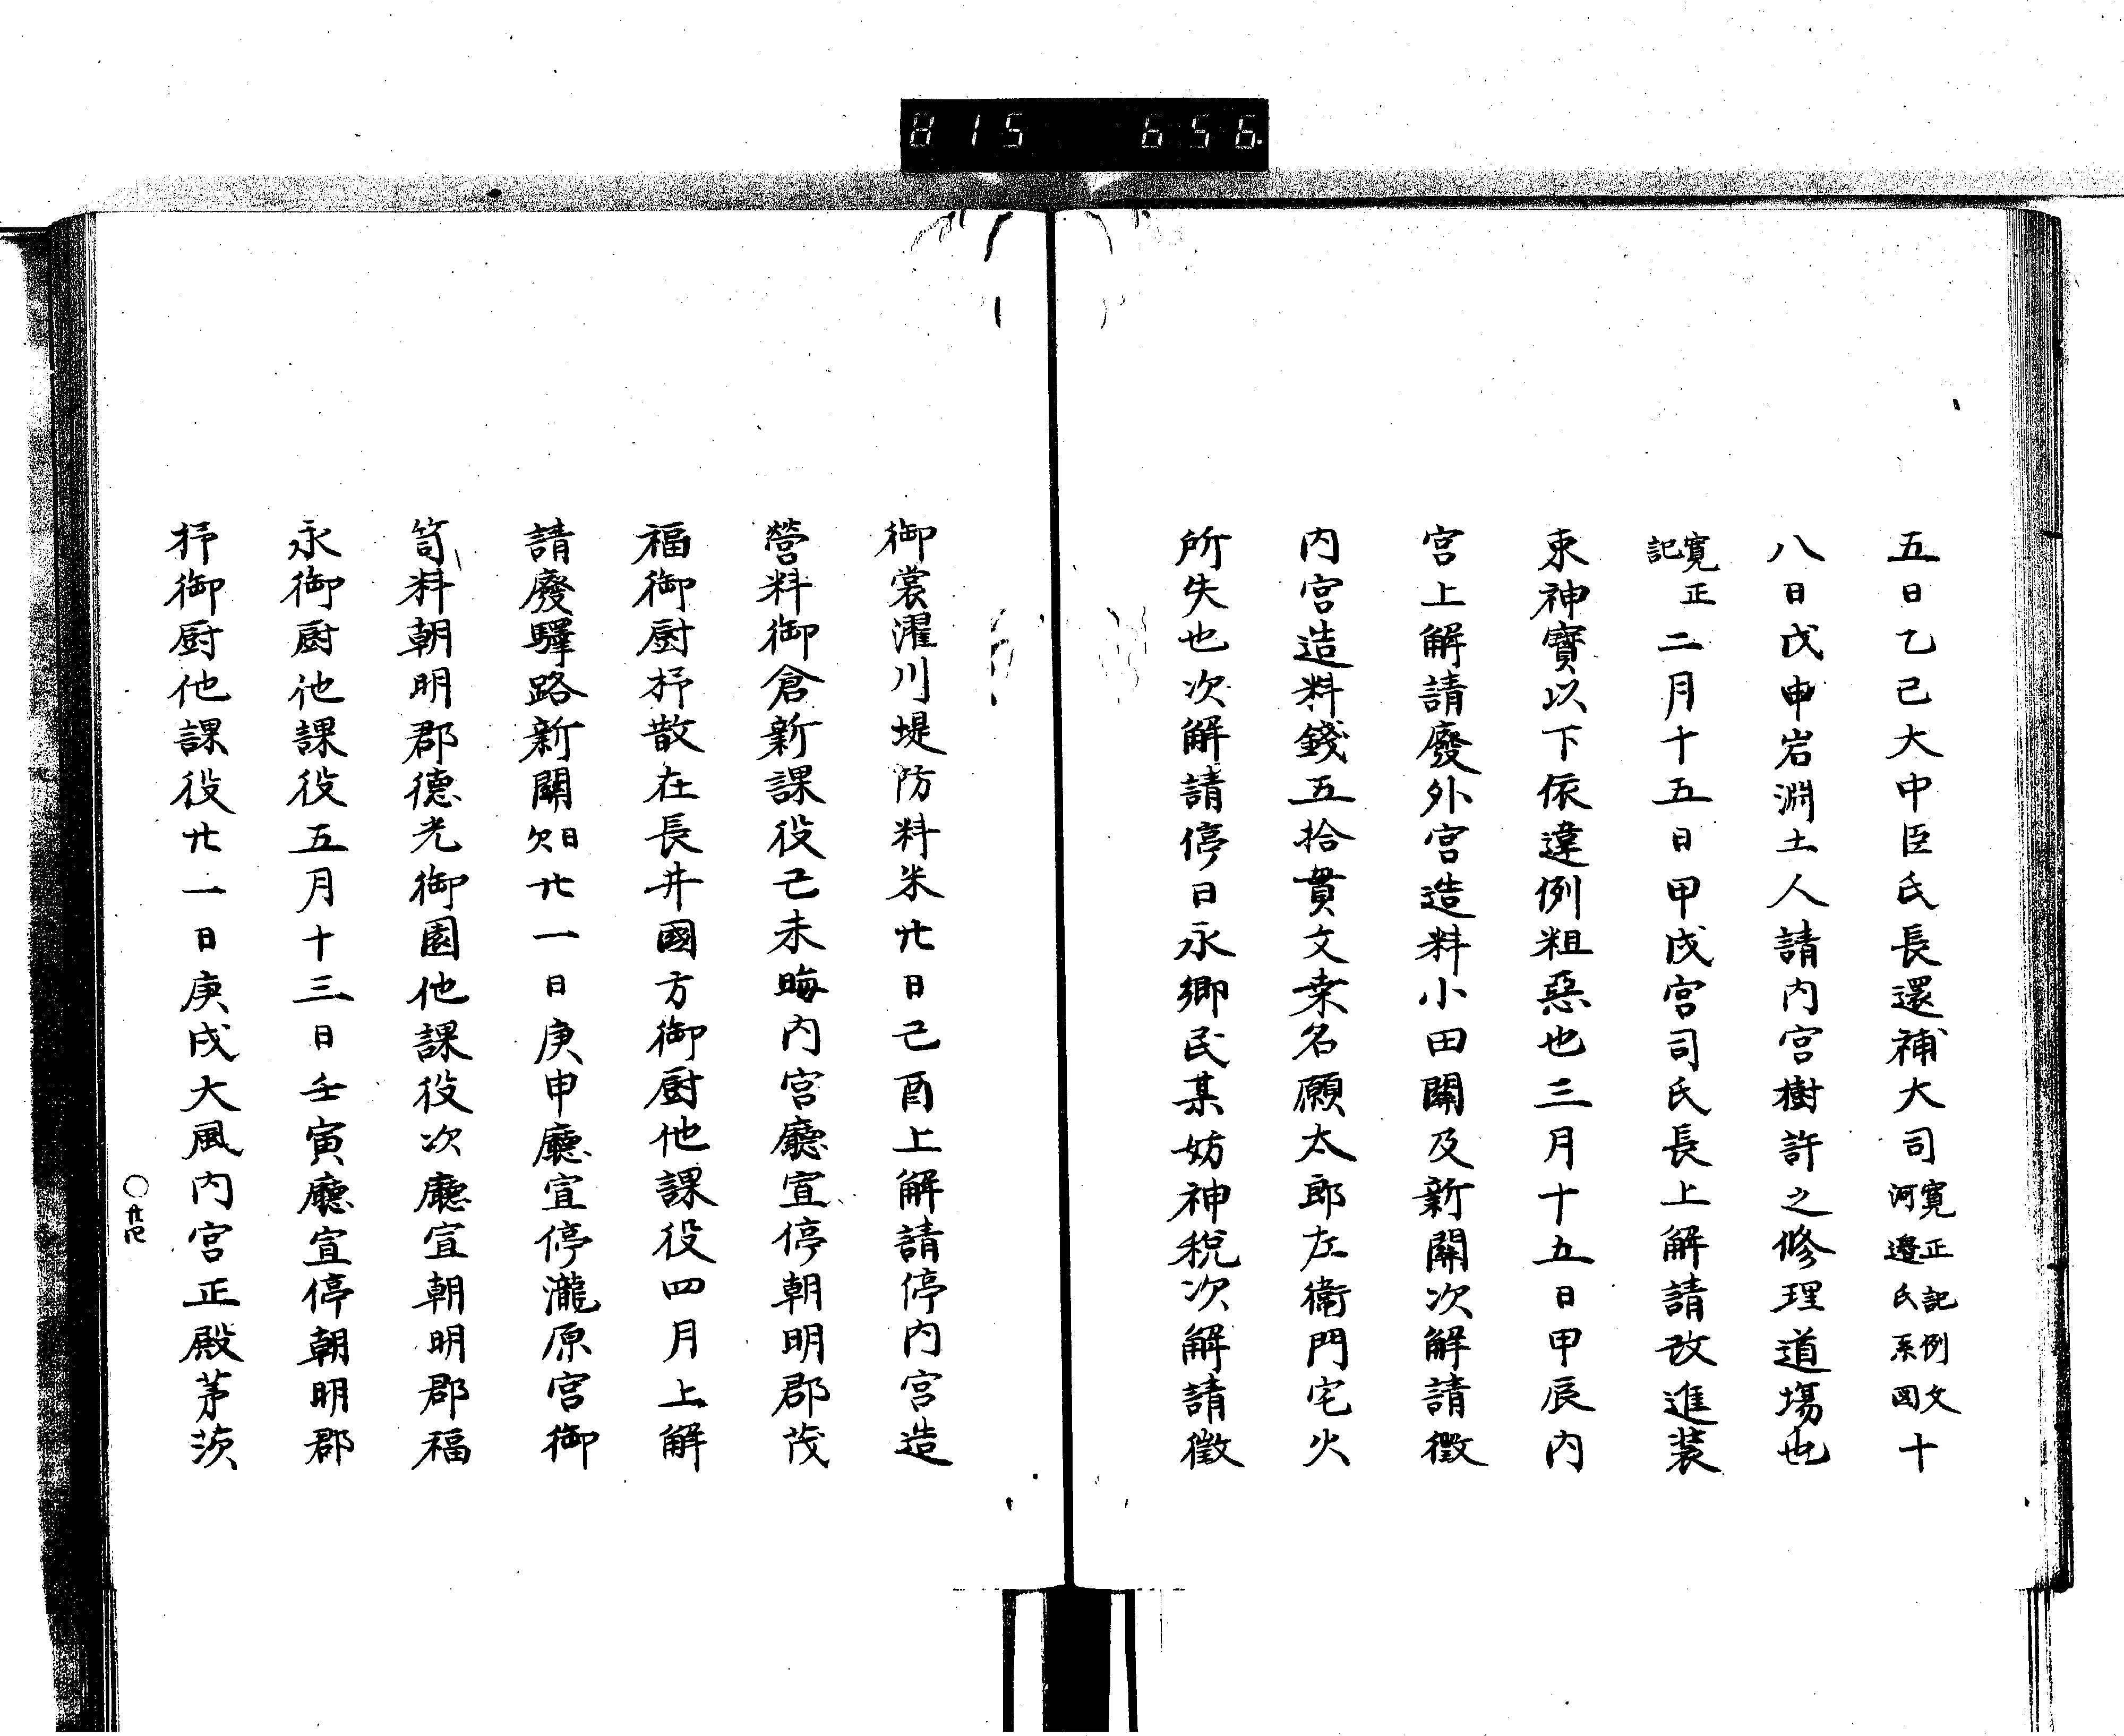 815 656.
五日乙己大中臣氏長還補大司寛正記例文河邊氏系図十
八日戊申岩淵土人請内宮樹許之修理道場也
寛正記二月十五日甲戌宮司氏長上解請改進装
束神寳以下依違例粗惡也三月十五日甲辰内
宮上解請廢外宮造料小田關及新關次解請徴
内宮造料錢五拾貫文桒名願太郎左衛門宅火
所失也次解請停日永郷民某妨神税次解請徴
御裳濯川堤防料米廿日己酉上解請停内宮造
營料御倉新課役己未晦内宮廳宣停朝明郡茂
福御厨抙散在長井國方御厨他課役四月上解
請廢驛路新關欠日廿一日庚申廳宣停瀧原宮御
笥料朝明郡德光御園他課役次廳宣朝明郡福
永御厨他課役五月十三日壬寅廳宣停朝明郡
抙御厨他課役廿一日庚戌大風内宮正殿茅茨